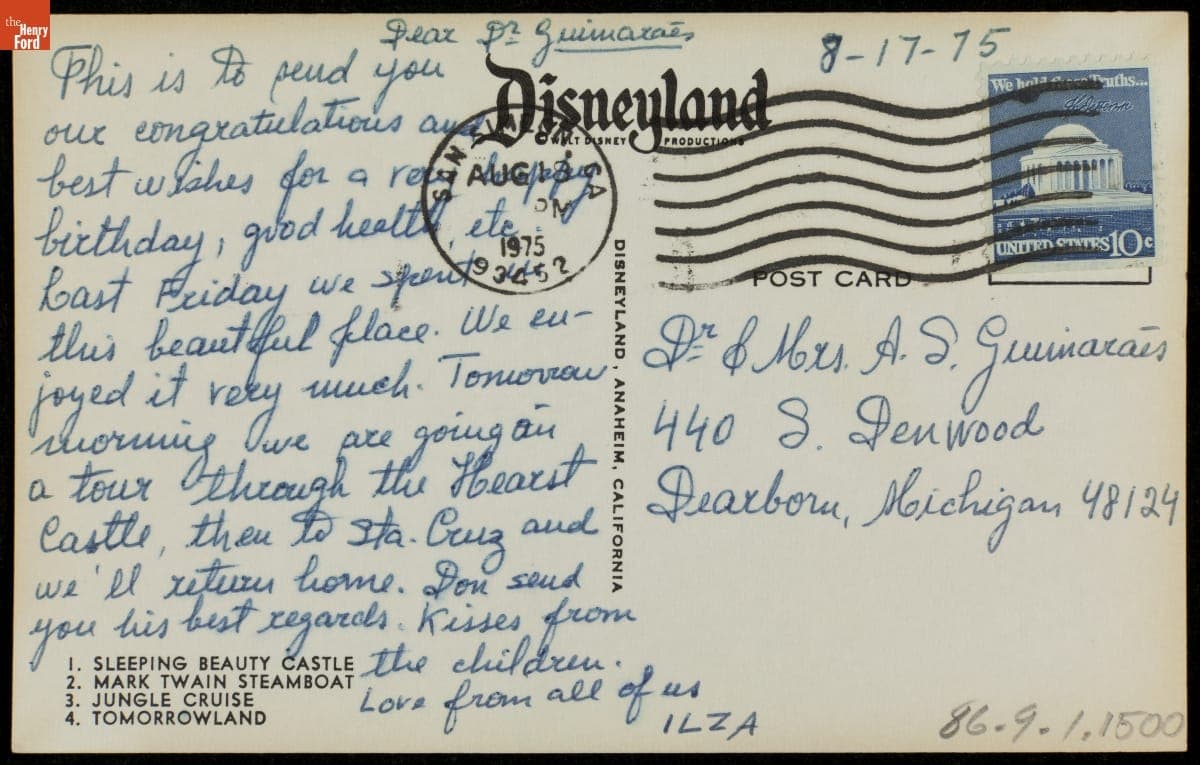 the
Henry
Ford
Dear Dr Guimarães
8-17-75
This is to send you
our congratulations and
best wishes for a very happy
birthday, good health, etc.
Last Friday we spent in
this beautiful place. We en-
joyed it very much. Tomorrow
morning we are going on
a tour through the Hearst
Castle, then to Sta. Cruz and
we'll return home. Don send
you his best regards. Kisses from
the children.
Love from all of us
ILZA
1. SLEEPING BEAUTY CASTLE
2. MARK TWAIN STEAMBOAT
3. JUNGLE CRUISE
4. TOMORROWLAND
Disneyland
© WALT DISNEY PRODUCTIONS
CA
AUG 18
PM
1975
93452
DISNEYLAND, ANAHEIM, CALIFORNIA
We hold these Truths...
UNITED STATES 10c
POST CARD
Dr & Mrs. A. S. Guimarães
440 S. Denwood
Dearborn, Michigan 48124
86.9.1.1500